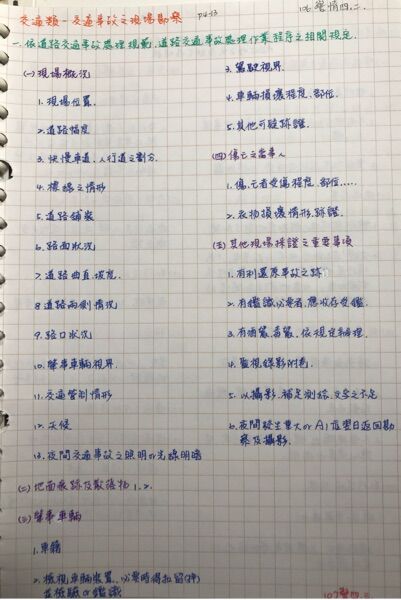 交通類-交通事故之現場勘察 P4-13
106警情四.二.
一.依道路交通事故處理規範,道路交通事故處理作業程序之相關規定.
(一)現場概況
1.現場位置.
2.道路幅度
3.快慢車道,人行道之劃分.
4.標線之情形
5.道路鋪裝
6.路面狀況
7.道路曲直.坡度.
8.道路兩側情況
9.路口狀況
10.肇事車輛視界.
11.交通管制情形
12.天候
13.夜間交通事故之照明or光線明暗
(二)地面痕跡及散落物1.2.
(三)肇事車輛
1.車籍
2.檢視車輛裝置.必要時得扣留(押)
並檢驗or鑑識
3.駕駛視界.
4.車輛損壞程度.部位.
5.其他可疑跡證.
(四)傷亡之當事人
1.傷.亡者受傷程度.部位.....
2.衣物損壞情形.跡證.
(五)其他現場採證之重要事項
1.有利還原事故之跡
2.有鑑識必要者,應收存受鑑.
3.有酒駕.毒駕.依規定辦理.
4.監視錄影
5.以攝影.補足測繪.文字之不足
6.夜間發生重大or A1 應翌日返回勘
察及攝影.